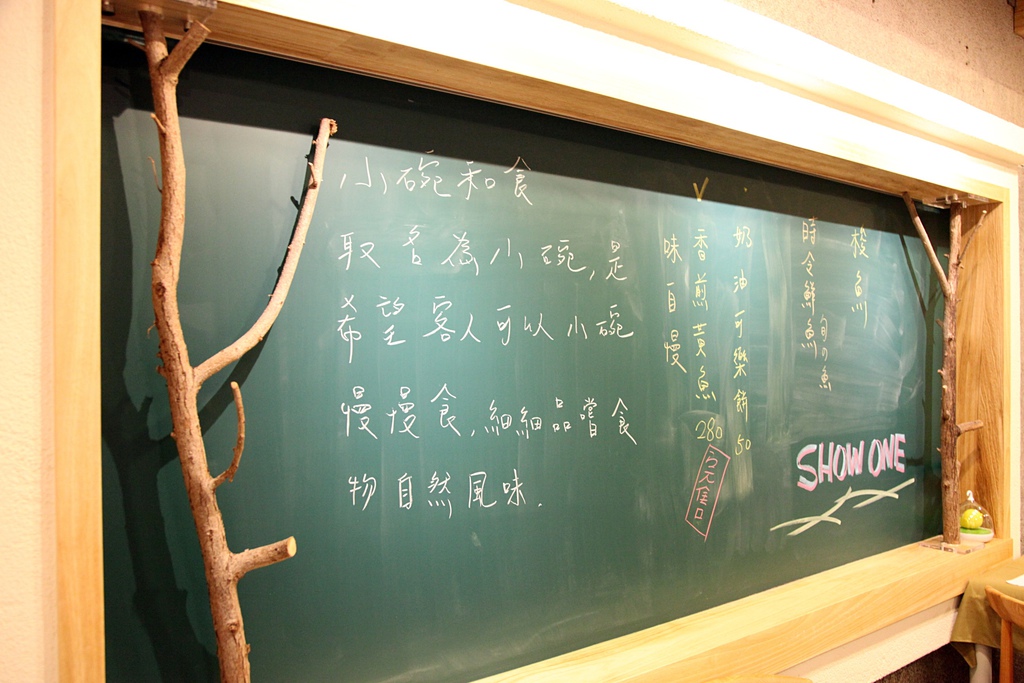 小碗和食
取名為小碗,是
希望客人可以小碗
慢慢食,細細品嚐食
物自然風味.
味自慢
香煎黃魚 280
奶油可樂餅 50
時令鮮魚
旬の魚
魚
SHOW ONE